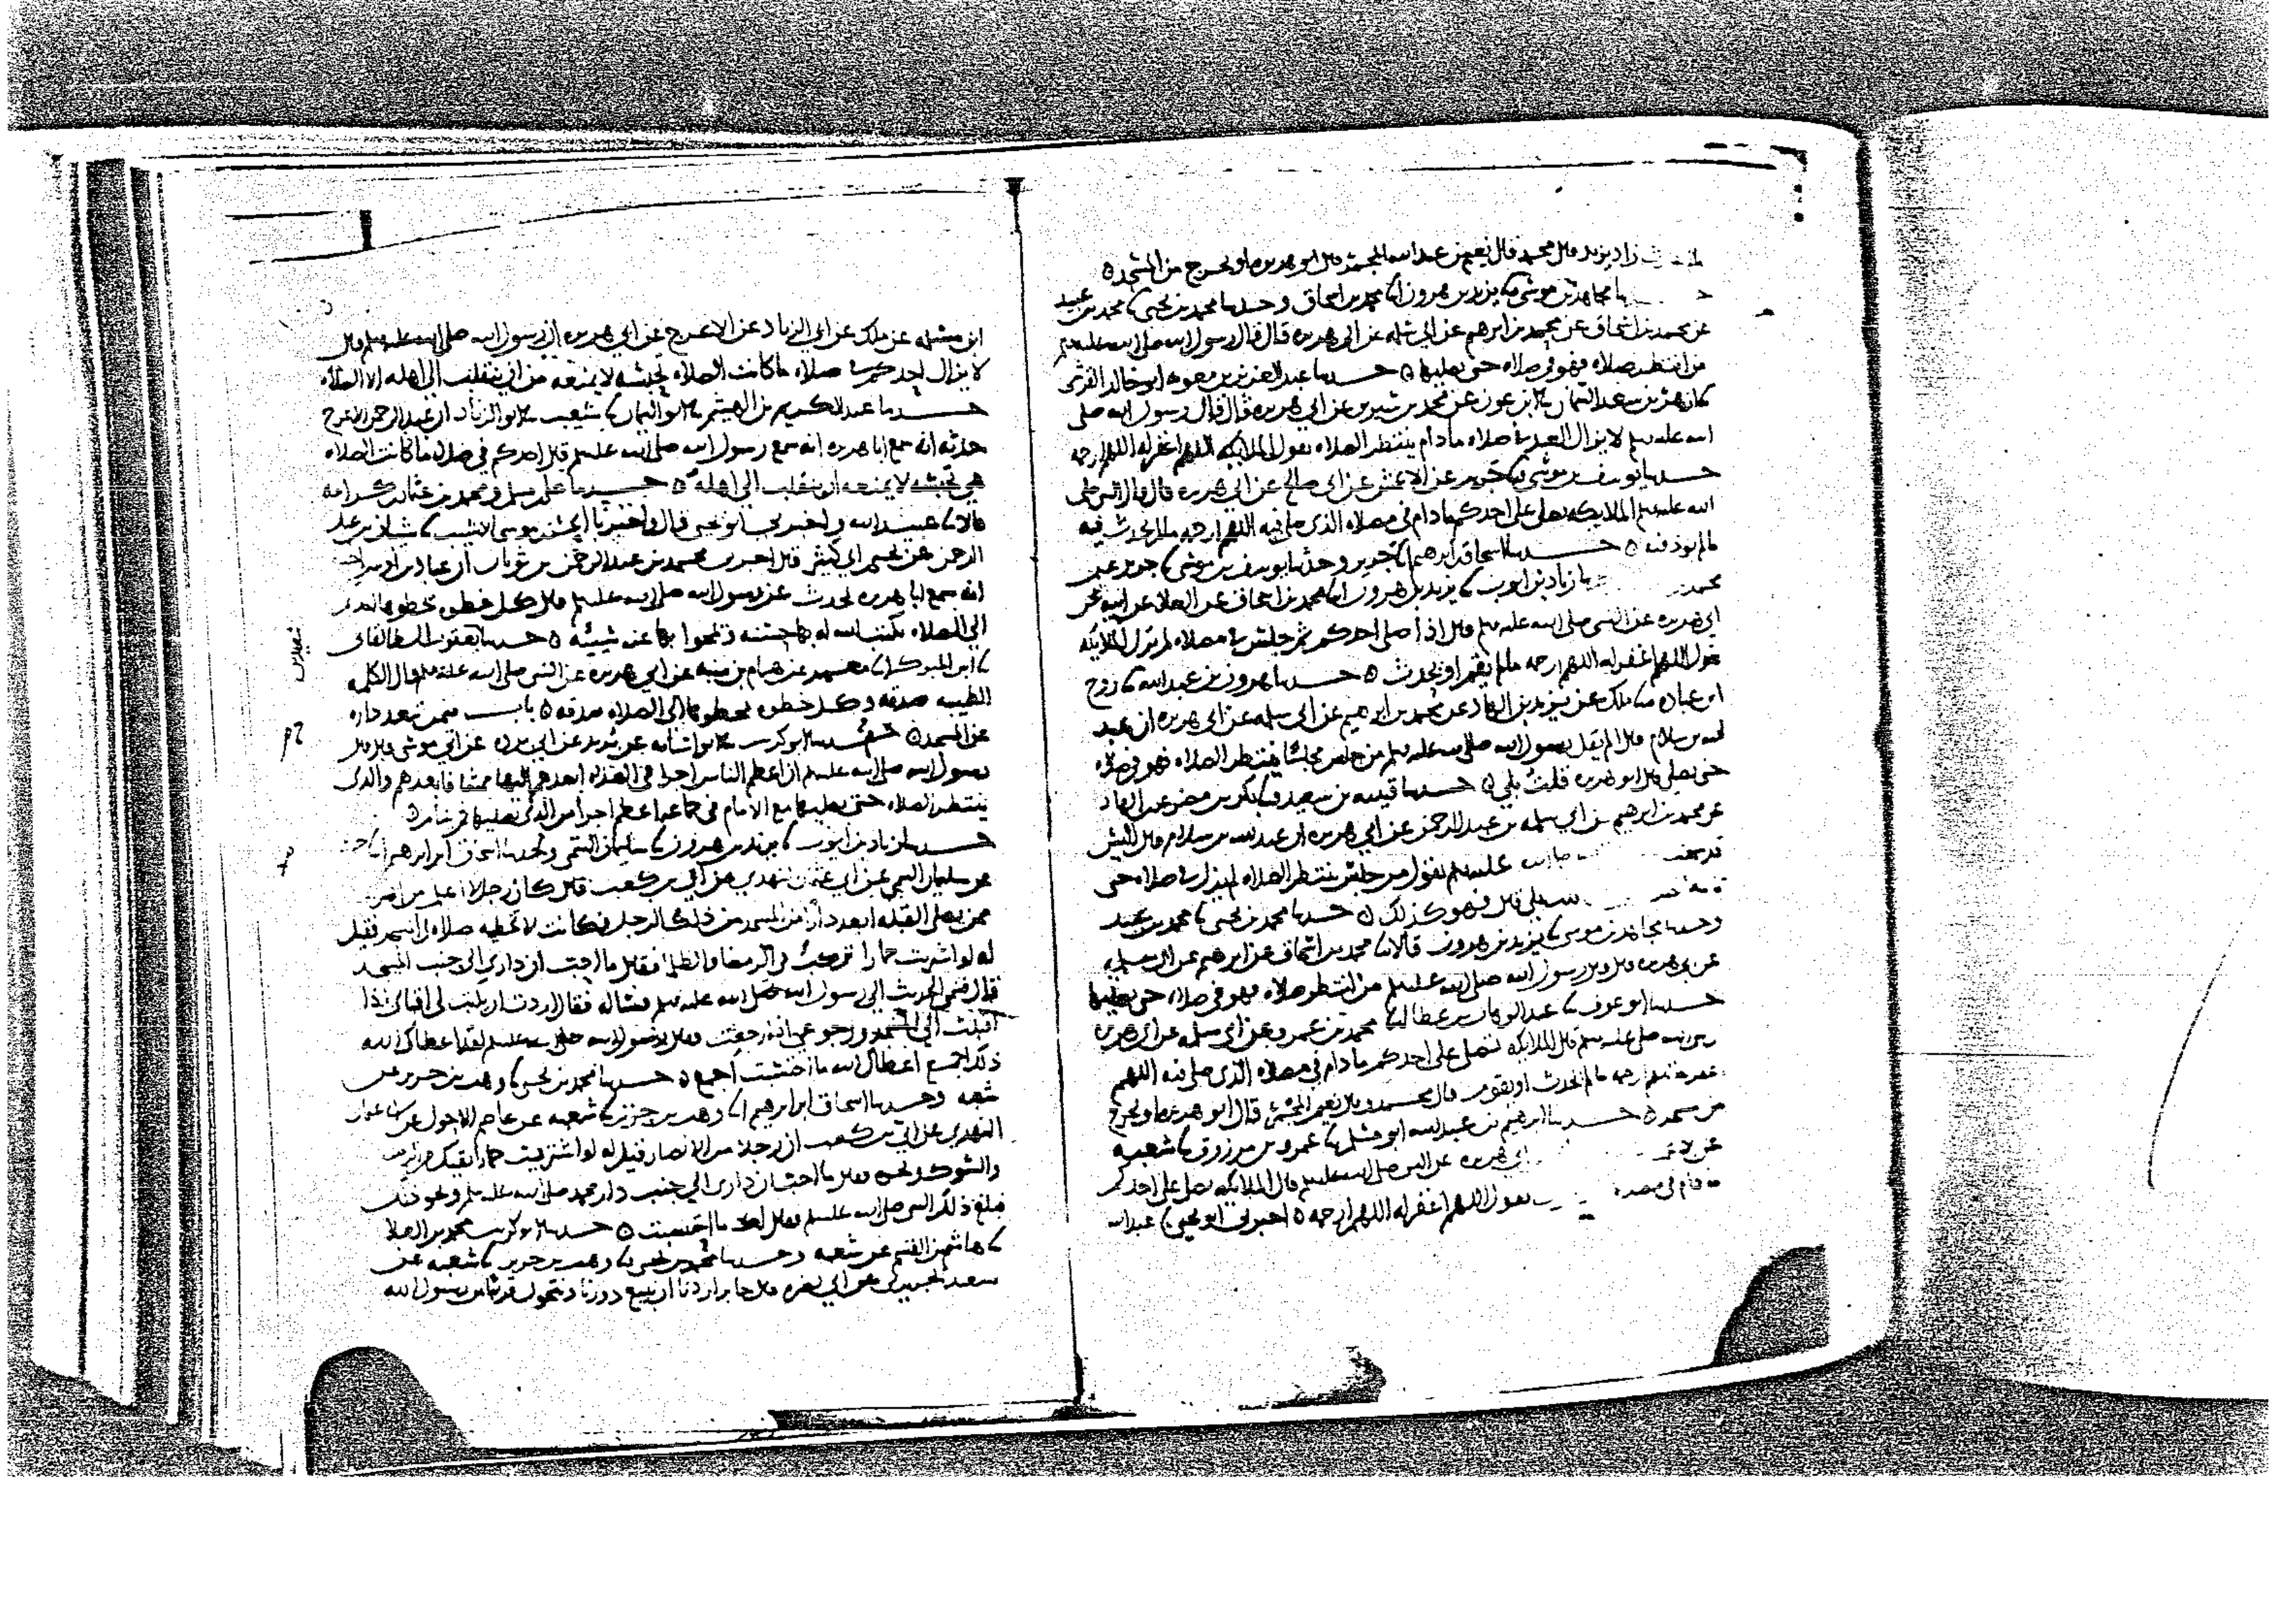 زاد يزيد قال محمد قال نعيم بن عبد الله المجمر قال ابو هريره او يخرج من المسجد
مجاهد بن موسى يزيد بن هرون محمد بن اسحاق وحدثنا محمد بن يحيى محمد بن عبيد
عن محمد بن اسحاق عن محمد بن ابرهيم عن ابي سلمه عن ابي هريره قال قال رسول الله صلى الله عليه وسلم
من انتظر صلاه فهو في صلاه حتى يصليها حدثنا عبد العزيز بن معويه ابو خالد القرشي
ازهر بن سعد السمان ابن عون عن محمد بن سيرين عن ابي هريره قال قال رسول الله صلى
الله عليه وسلم لا يزال العبد في صلاه مادام ينتظر الصلاه تقول الملايكه اللهم اغفر له اللهم ارحمه
حدثنا يوسف بن موسى جرير عن الاعمش عن ابي صالح عن ابي هريره قال قال النبي صلى
الله عليه وسلم الملايكه تصلي على احدكم مادام في مصلاه الذي صلى فيه اللهم ارحمه مالم يحدث فيه
مالم يوذ فيه حدثنا اسحاق بن ابرهيم جرير وحدثنا يوسف بن موسى جرير عن
محمد زياد بن ايوب يزيد بن هرون محمد بن اسحاق عن العلا عن ابيه عن
ابي هريره عن النبي صلى الله عليه وسلم قال اذا صلى احدكم ثم جلس في مصلاه لم تزل الملايكه
تقول اللهم اغفر له اللهم ارحمه مالم يقم او يحدث حدثنا هرون بن عبد الله روح
ابن عباده ملك عن يزيد بن الهاد عن محمد بن ابرهيم عن ابي سلمه عن ابي هريره ان عبد
الله بن سلام قال الم يقل رسول الله صلى الله عليه وسلم من جلس مجلسا ينتظر الصلاه فهو في صلاه
حتى يصلي قال ابو هريره قلت بلى حدثنا قتيبه بن سعيد بكر بن مضر عن ابن الهاد
عن محمد بن ابرهيم عن ابي سلمه بن عبد الرحمن عن ابي هريره ان عبد الله بن سلام قال اليس
قد سمعت عليه وسلم يقول من جلس ينتظر الصلاه لم يزل في صلاه حتى
يصلي قال فهو كذلك حدثنا محمد بن يحيى محمد بن عبيد
وحدثنا مجاهد بن موسى يزيد بن هرون قالا محمد بن اسحاق عن ابرهيم عن ابي سلمه
عن ابي هريره قال قال رسول الله صلى الله عليه وسلم من انتظر صلاه فهو في صلاه حتى يصليها
حدثنا ابو عوف عبد الوهاب بن عطا محمد بن عمرو عن ابي سلمه عن ابي هريره
صلى الله عليه وسلم قال الملايكه تصلي على احدكم مادام في مصلاه الذي صلى فيه اللهم
ارحمه مالم يحدث او يقوم قال محمد وقال نعيم المجمر قال ابو هريره او يخرج
من مسجد حدثنا ابرهيم بن عبد الله ابو مسلم عمرو بن مرزوق شعبه
ابي هريره عن النبي صلى الله عليه وسلم قال الملايكه تصلي على احدكم
مادام في مصلاه تقول اللهم اغفر له اللهم ارحمه اخبرني ابو يحيى عبد الله
ابن مسلمه عن ملك عن ابي الزناد عن الاعرج عن ابي هريره ان رسول الله صلى الله عليه وسلم قال
لا يزال احدكم في صلاه ما كانت الصلاه تحبسه لا يمنعه من ان ينقلب الى اهله الا الصلاه
حدثنا عبد الكريم بن الهيثم ابو اليمان شعيب ابو الزناد ان عبد الرحمن الاعرج
حدثه انه سمع ابا هريره انه سمع رسول الله صلى الله عليه وسلم قال احدكم في صلاه ما كانت الصلاه
هي تحبسه لا يمنعه ان ينقلب الى اهله حدثنا محمد بن عثمان بن كرامه
قالا عبيد الله واخبرني ابو يحيى قال واخبرنا الحسن بن موسى الاشيب شيبان بن عبد
الرحمن عن يحيى بن ابي كثير قال اخبرني محمد بن عبد الرحمن بن ثوبان ان
انه سمع ابا هريره يحدث عن رسول الله صلى الله عليه وسلم قال كل خطوه يخطوها احدكم
الى الصلاه يكتب الله له بها حسنه ويمحوا بها عنه سيئه حدثنا يعقوب الطالقاني
ابن المبرك معمر عن همام بن منبه عن ابي هريره عن النبي صلى الله عليه وسلم قال الكلمه
الطيبه صدقه وكل خطوه يخطوها الى الصلاه صدقه باب من بعد داره
عن المسجد حدثنا ابو كريب ابو اسامه عن بريد عن ابي برده عن ابي موسى قال قال
رسول الله صلى الله عليه وسلم ان اعظم الناس اجرا في الصلاه ابعدهم اليها ممشا فابعدهم والذي
ينتظر الصلاه حتى يصليها مع الامام في جماعه اعظم اجرا من الذي يصليها ثم ينام
حدثنا زياد بن ايوب يزيد بن هرون سليمان التيمي وحدثنا اسحاق بن ابرهيم
عن سليمان التيمي عن ابي عثمان النهدي عن ابي بن كعب قال كان رجل لا اعلم من
ممن يصلي القبله ابعد دارا من المسجد من ذلك الرجل فكانت لا تخطيه صلاه فقيل
له لو اشتريت حمارا تركبه في الرمضا والظلما فقال ما احب ان داري الى جنب المسجد
قال فنمى الحديث الى رسول الله صلى الله عليه وسلم فساله فقال اردت ان يكتب لي اقبالي اذا
اقبلت الى المسجد ورجوعي اذا رجعت فقال رسول الله صلى الله عليه وسلم لقد اعطاك الله
ذلك اجمع اعطاك الله ما احتسبت اجمع حدثنا محمد بن يحيى وهب بن جرير عن
شعبه وحدثنا اسحاق بن ابرهيم وهب بن جرير شعبه عن عاصم الاحول عن ابي عثمان
النهدي عن ابي بن كعب ان رجلا من الانصار فقيل له لو اشتريت حمارا يقيك
والشوك ونحوه فقال ما احب ان داري الى جنب دار محمد صلى الله عليه وسلم ونحو ذلك
فبلغ ذلك النبي صلى الله عليه وسلم فقال لك ما احتسبت حدثنا ابو كريب محمد بن العلا
هاشم بن القسم عن شعبه وحدثنا محمد بن يحيى وهب بن جرير شعبه عن
سعيد الجريري عن ابي نضره قال جابر اردنا ان نبيع دورنا ونتحول قربنا من رسول الله